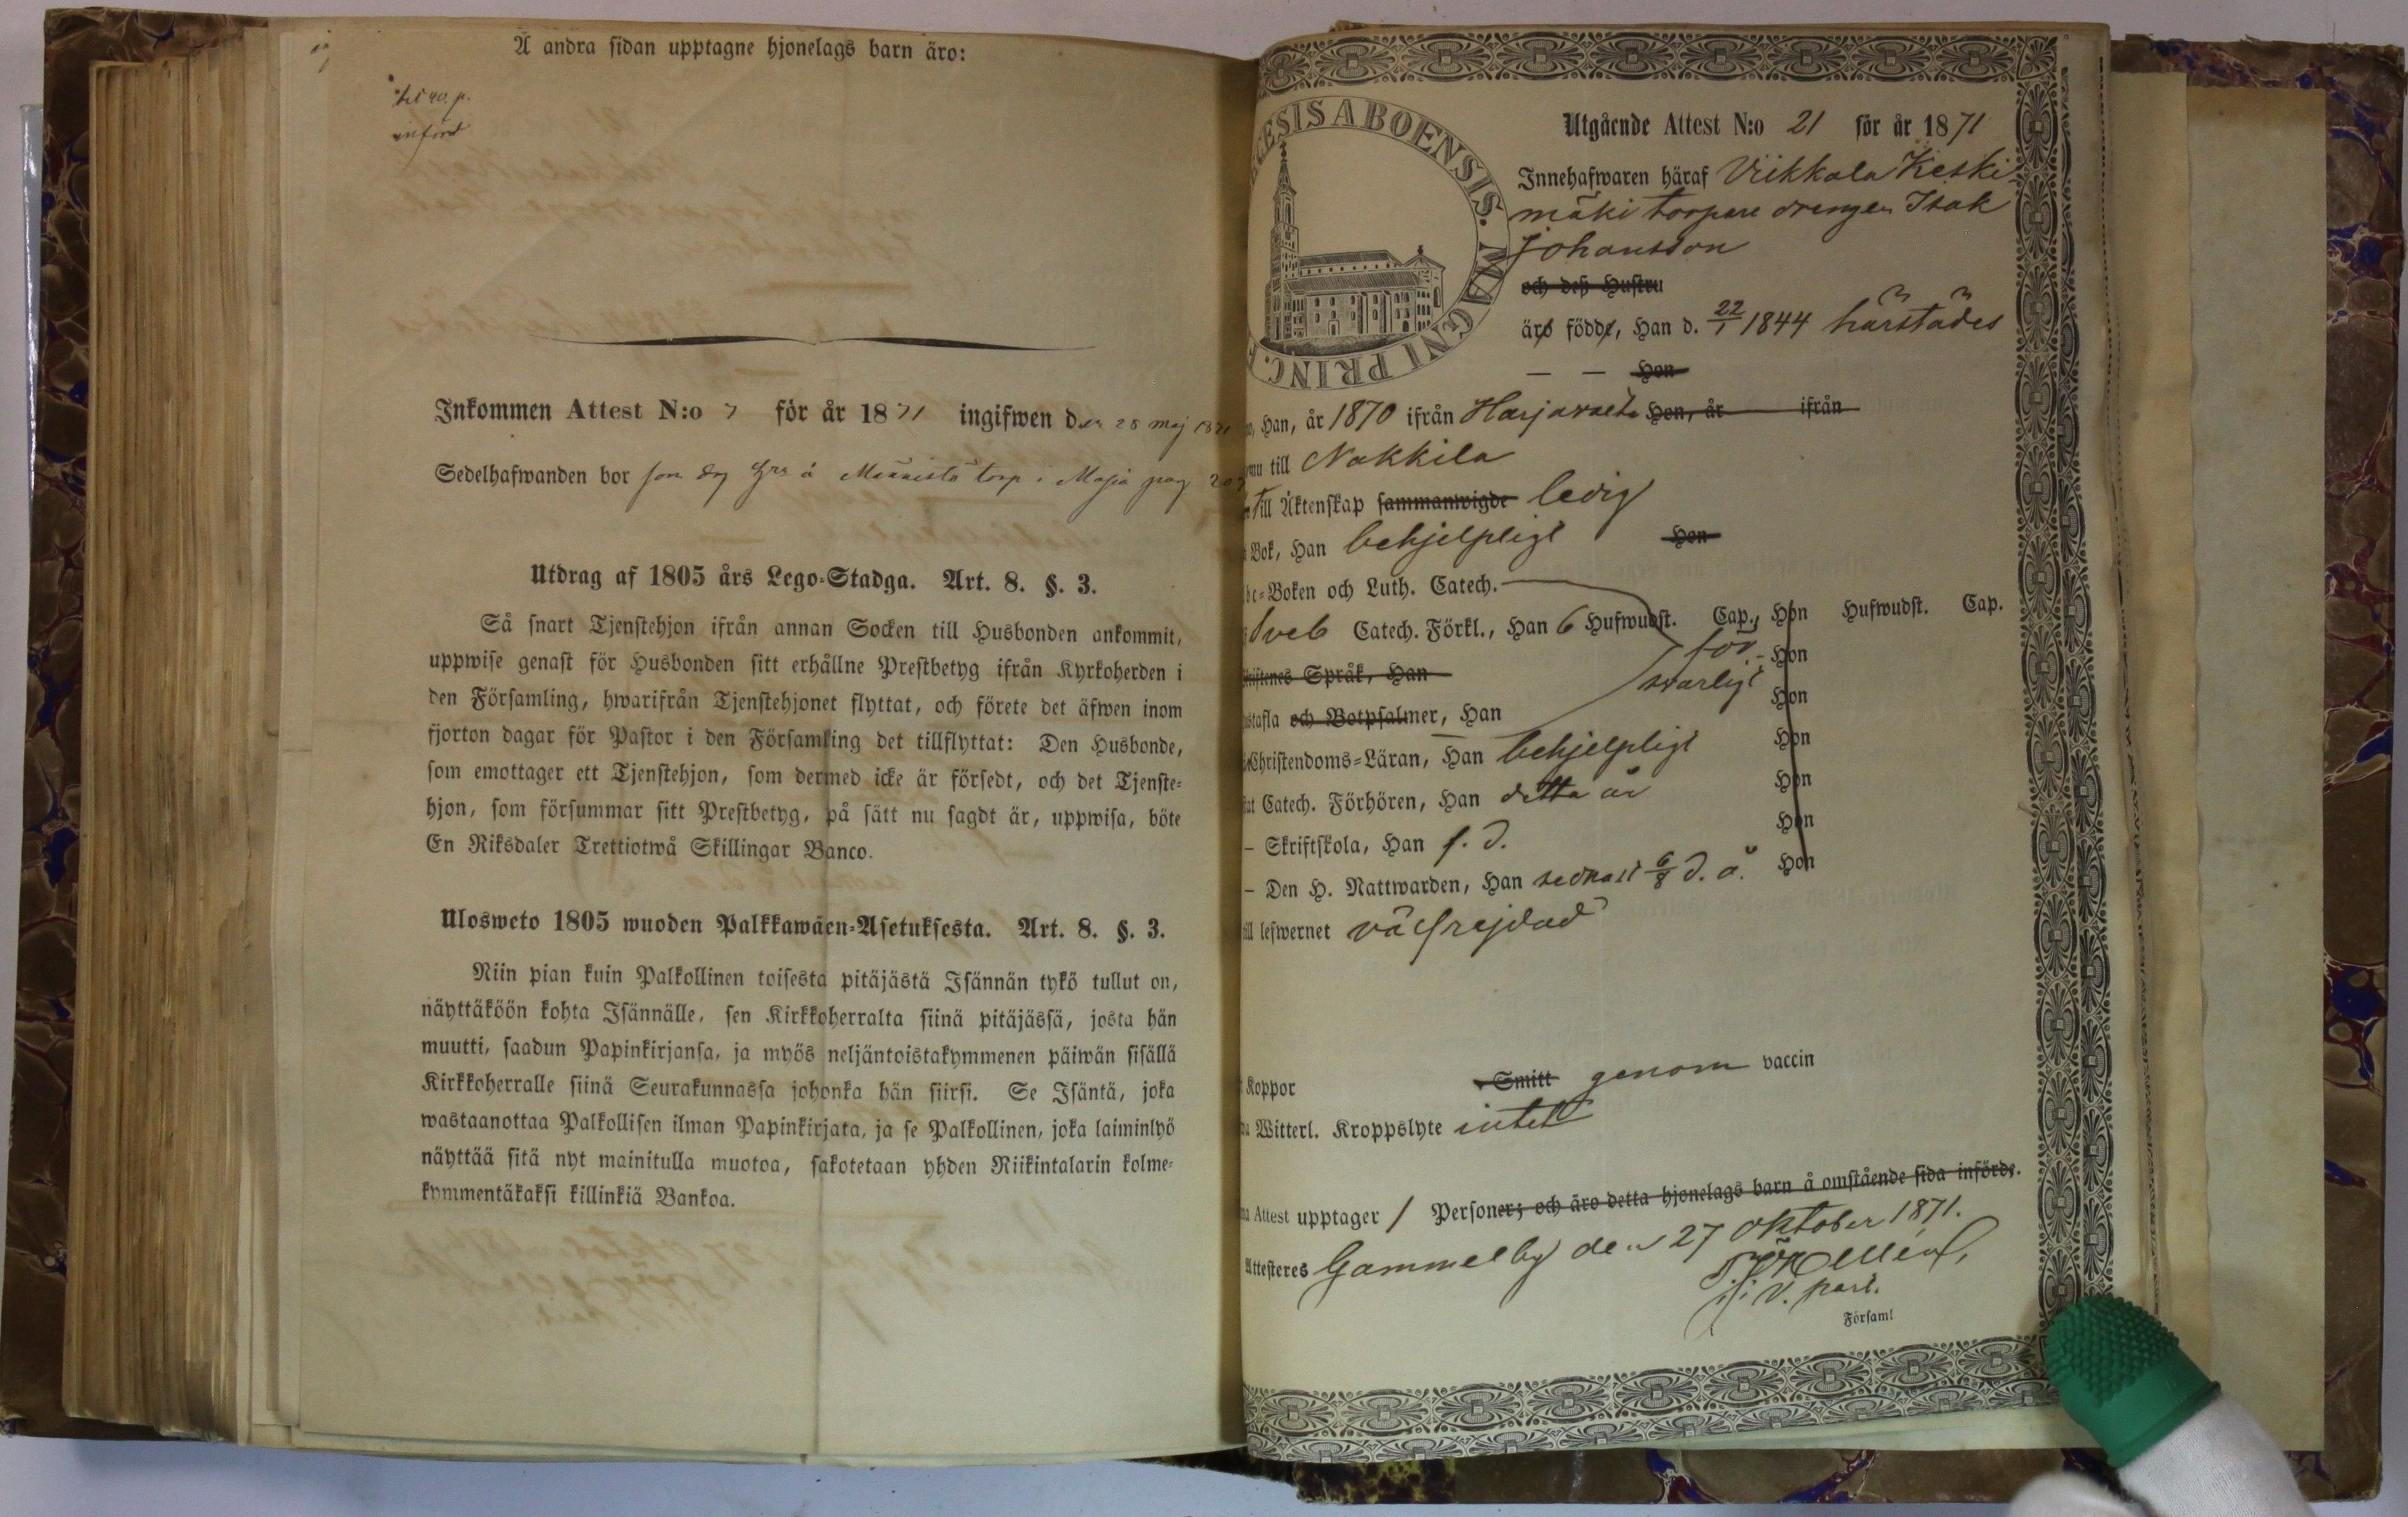 Å andra sidan upptagne hjonelags barn äro:
införd
Inkommen Attest N:o 7 för år 1871 ingifwen den 28 maj 1871
Sedelhafwanden bor som torp i pag
Utdrag af 1805 års Lego-Stadga. Art. 8. §. 3.
Så snart Tjenstehjon ifrån annan Socken till Husbonden ankommit,
uppwise genast för Husbonden sitt erhållne Prestbetyg ifrån Kyrkoherden i
den Församling, hwarifrån Tjenstehjonet flyttat, och förete det äfwen inom
fjorton dagar för Pastor i den Församling det tillflyttat: Den Husbonde,
som emottager ett Tjenstehjon, som dermed icke är försedt, och det Tjenste-
hjon, som försummar sitt Prestbetyg, på sätt nu sagdt är, uppwisa, böte
En Riksdaler Trettiotwå Skillingar Banco.
Ulosweto 1805 wuoden Palkkawäen-Asetuksesta. Art. 8. §. 3.
Niin pian kuin Palkollinen toisesta pitäjästä Isännän tykö tullut on,
näyttäköön kohta Isännälle, sen Kirkkoherralta siinä pitäjässä, josta hän
muutti, saadun Papinkirjansa, ja myös neljäntoistakymmenen päiwän sisällä
Kirkkoherralle siinä Seurakunnassa johonka hän siirsi. Se Isäntä, joka
wastaanottaa Palkollisen ilman Papinkirjata, ja se Palkollinen, joka laiminlyö
näyttää sitä nyt mainitulla muotoa, sakotetaan yhden Riikintalarin kolme-
kymmentäkaksi killinkiä Bankoa.
ECESIS ABOENSIS. MAGNI PRINC. F
Utgående Attest N:o 21 för år 1871
Innehafwaren häraf Viikkala Keski
mäki torpare drengen Isak
Johansson
och deß Hustru
äro födde, Han d. 22/1 1844 härstädes
— — Hon
Han, år 1870 ifrån Harjavalta Hon, år ifrån
till Nakkila
till Äktenskap sammanwigde ledig
Bok, Han behjelpligt Hon
-Boken och Luth. Catech.
Sveb Catech. Förkl., Han 6 Hufwudst. Cap., Hon Hufwudst. Cap.
för- Hon
Språk, Han svarligt Hon
stafla och Botpsalmer, Han
Christendoms-Läran, Han behjelpligt Hon
Catech. Förhören, Han detta år Hon
– Skriftskola, Han f. d. Hon
– Den H. Nattwarden, Han sednast 6/8 d. å. Hon
till lefwernet välfrejdad
Koppor Smitt genom vaccin
Witterl. Kroppslyte intet
Attest upptager 1 Personer; och äro detta hjonelags barn å omstående sida införde.
Attesteres Gammelby den 27 oktober 1871.
v. past.
Församl